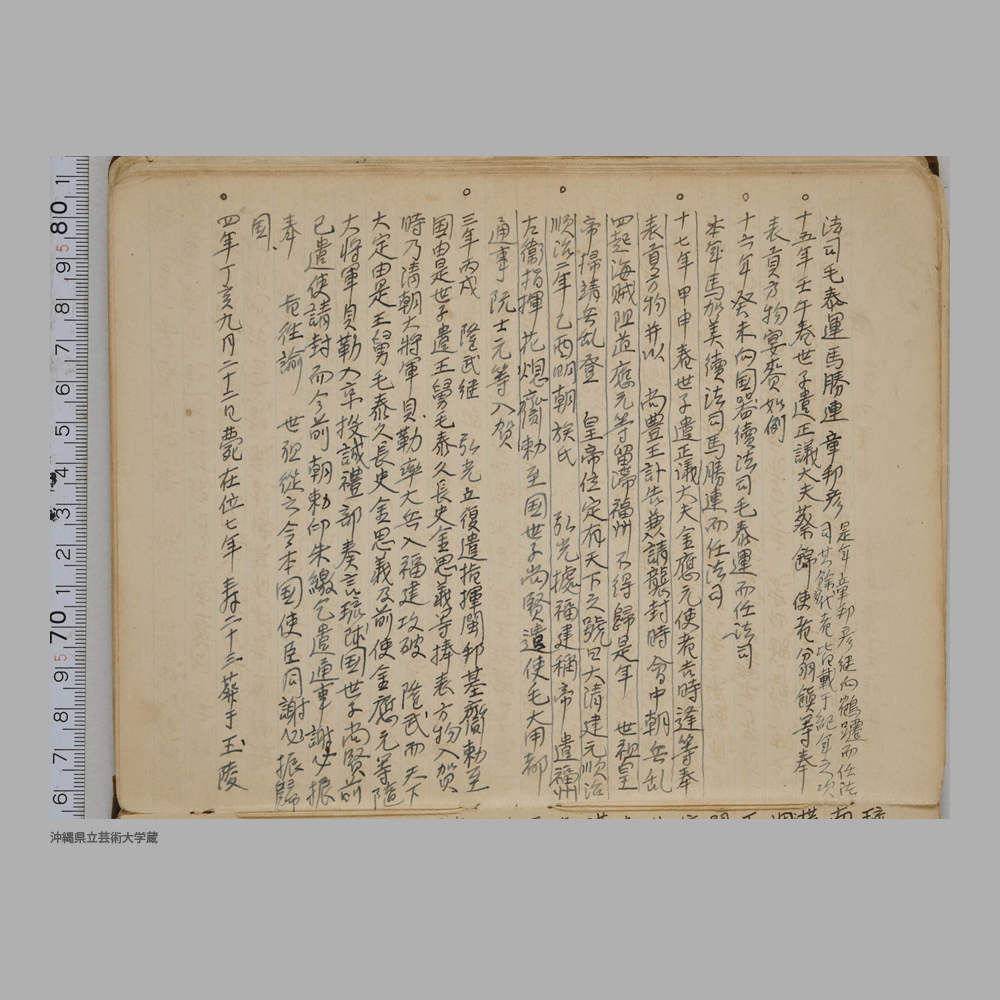 法司毛泰運馬勝連章邦彦 是年章邦彦継向鶴躔而任法
司其餘代 皆載于紀年之次
十五年壬午春世子遣正議大夫蔡錦使者翁饋等奉
表貢方物宴賚如例
十六年癸未向国器續法司毛泰運而任法司
本年馬加美續法司馬勝連而任法司
十七年甲申春世子遣正議大夫金應元使者吉時逢等奉
表貢方物并以 尚豊王訃告兼請襲封時会中朝兵乱
四起海賊阻道應元等留滞福州不得歸是年 世祖皇
帝掃靖兵乱登 皇帝位定有天下之號曰大清建元順治
順治二年乙酉明朝族氏 弘光據福建稱帝 遣福州
左衛指揮花煾齎勅至国世子尚賢遣使毛大用都
通事阮士元等入賀
三年丙戌 隆武継 弘光立復遣指揮閩邦基齎勅至
国由是世子遣王舅毛泰久長史金思義等捧表方物入賀
時乃清朝大將軍貝勒率大兵入福建攻破 隆武而天下
大定由是王舅毛泰久長史金思義及前使金應元等隨
大將軍貝勒入京投誠禮部奏言琉球国世子尚賢前
已遣使請封而今前朝勅印未繳乞遣通事謝必振
奉 旨往諭 世祖從之令本国使臣同謝必振歸
国
四年丁亥九月二十二日薨在位七年寿二十三葬于玉陵
80
70
沖縄県立芸術大学蔵